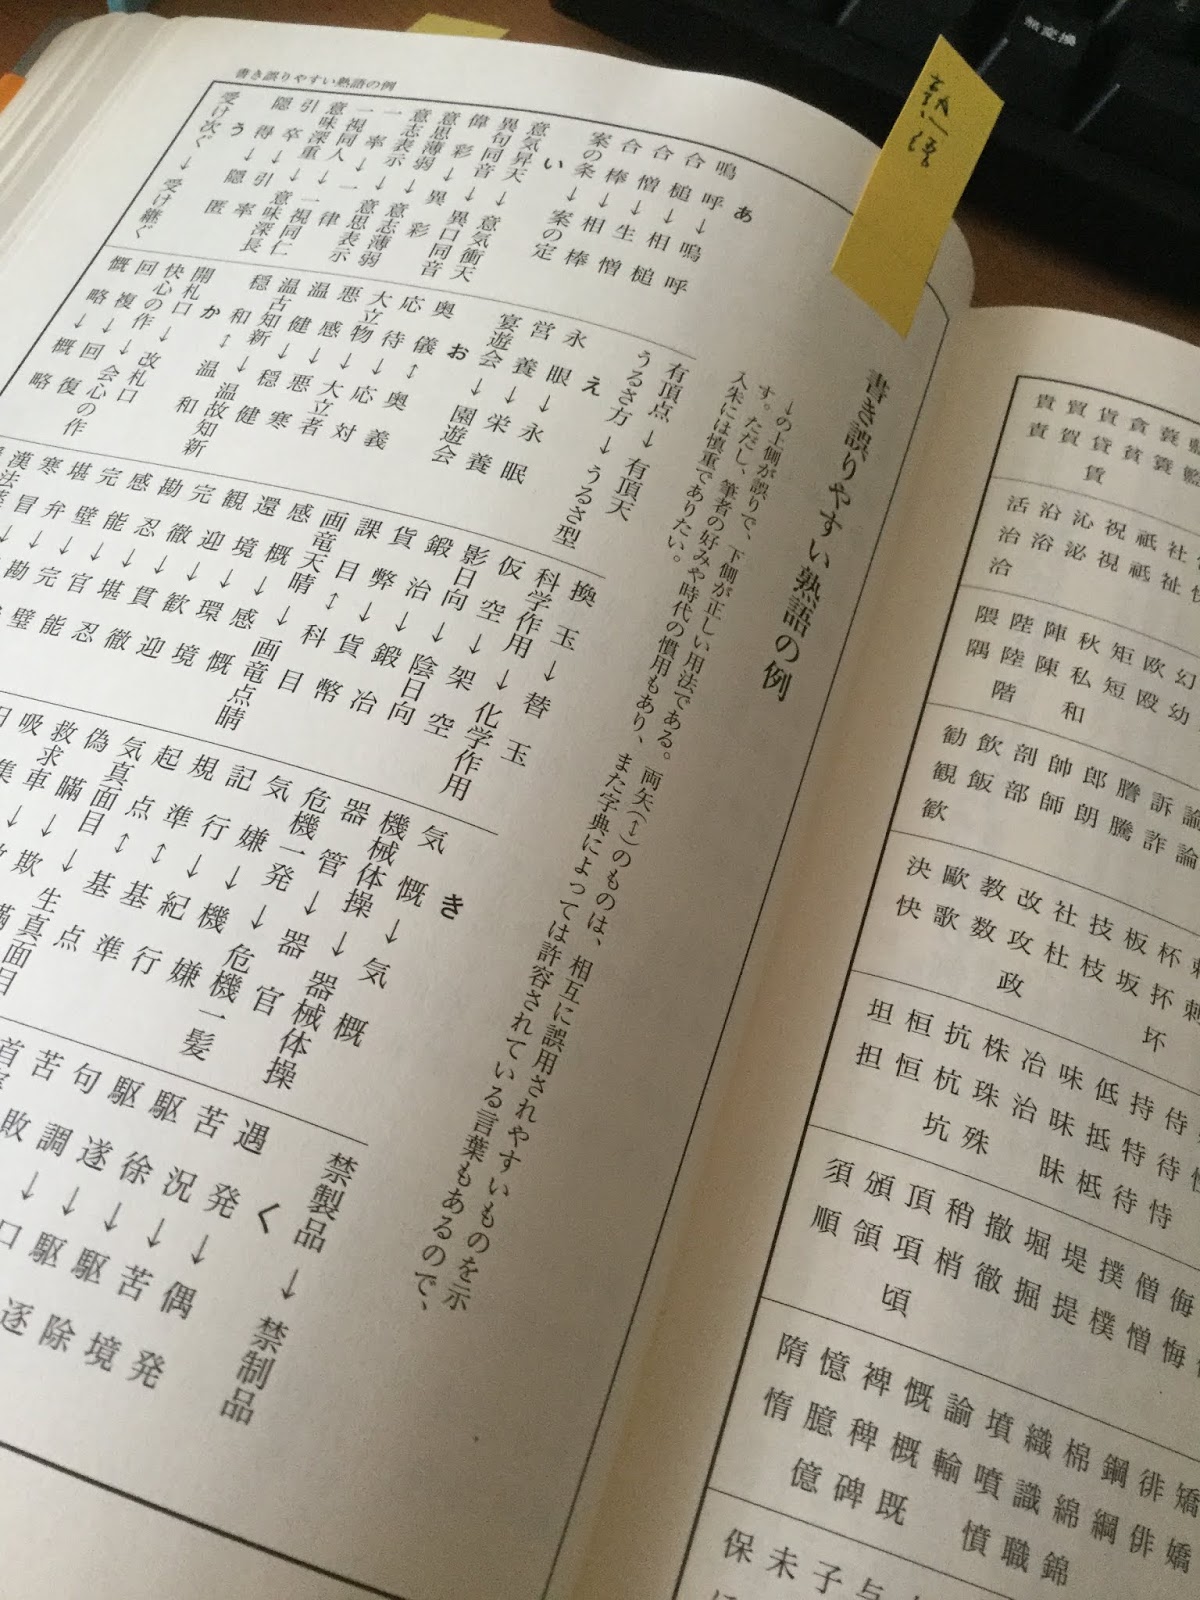 無変換
熟語
書き誤りやすい熟語の例
書き誤りやすい熟語の例
→の上側が誤りで、下側が正しい用法である。両矢(↔)のものは、相互に誤用されやすいものを示
す。ただし、筆者の好みや時代の慣用もあり、また字典によっては許容されている言葉もあるので、
入朱には慎重でありたい。
あ
嗚呼→嗚呼
合槌→相槌
合憎→生憎
合棒→相棒
案の条→案の定
い
意気昇天→意気衝天
異句同音→異口同音
偉彩→異彩
意思薄弱→意志薄弱
意志表示→意思表示
一率→一律
一視同人→一視同仁
意味深重→意味深長
引卒→引率
隠得→隠匿
う
受け次ぐ→受け継ぐ
有頂点→有頂天
うるさ方→うるさ型
え
永眼→永眠
営養→栄養
宴遊会→園遊会
お
奥儀↔奥義
応待→応対
大立物→大立者
悪感→悪寒
温健→穏健
温古知新→温故知新
穏和↔温和
か
開札口→改札口
快心の作→会心の作
回複→回復
慨略→概略
換玉→替玉
科学作用→化学作用
仮空→架空
影日向→陰日向
鍛治→鍛冶
貨弊→貨幣
課目↔科目
画竜天晴→画竜点睛
感概→感慨
還境→環境
観迎→歓迎
完徹→貫徹
勘忍→堪忍
感能→官能
完壁→完璧
気慨→気概
き
機械体操→器械体操
器管→器官
危機一発→危機一髪
気嫌→機嫌
記行→紀行
規準↔基準
起点↔基点
気真面目→生真面目
偽瞞→欺瞞
救求車
吸集
禁製品→禁制品
く
遇発→偶発
苦況→苦境
駆徐→駆除
駆遂→駆逐
句調→口調
苦敗
貴貿貨貪蓑
責賀貸貧簑
賃
活浴沁祝祗社
治浴泌視祇祉
洽
隈陛陣秋矩欧幻
隅陸陳私短殴幼
階　和
勧飲剖帥郎謄訴論
観飯部師朗騰詐諭
歓
決歐教改社技板杯刺
快歌数攻杜枝坂抔剌
政　坏
坦桓抗株冶味低持侍
担恒杭珠治昧抵特待
坑殊　眛柢待恃
須頒頂稍撤堀堤撲僧侮
順領項梢徹掘提樸憎悔
頃
隋憶裨慨論墳織棉鋼徘矯
惰臆稗概輸噴識綿綱俳嬌
億碑既　憤職錦
保未子与